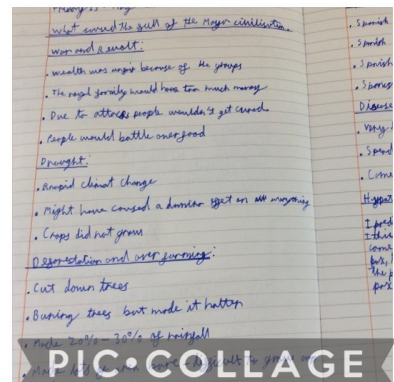 What caused the fall of the Mayan civilisation.
War and revolt:
. Wealth was unfair because of the groups
. The royal family would have too much money
. Due to attacks people wouldn't get cured
. People would battle over food
Drought:
. Rapid climat change
. Might have caused a domino effet on everything
. Crops did not grow
Deforestation and over farming:
. Cut down trees
. Burning trees but made it hotter
. Made 20% - 30% of rainfall
difficult to
. Spanish
. Spanish
. Spanish
Disease
. Very
. Spread
. Come
I pred
I thin
come
the p
PIC•COLLAGE